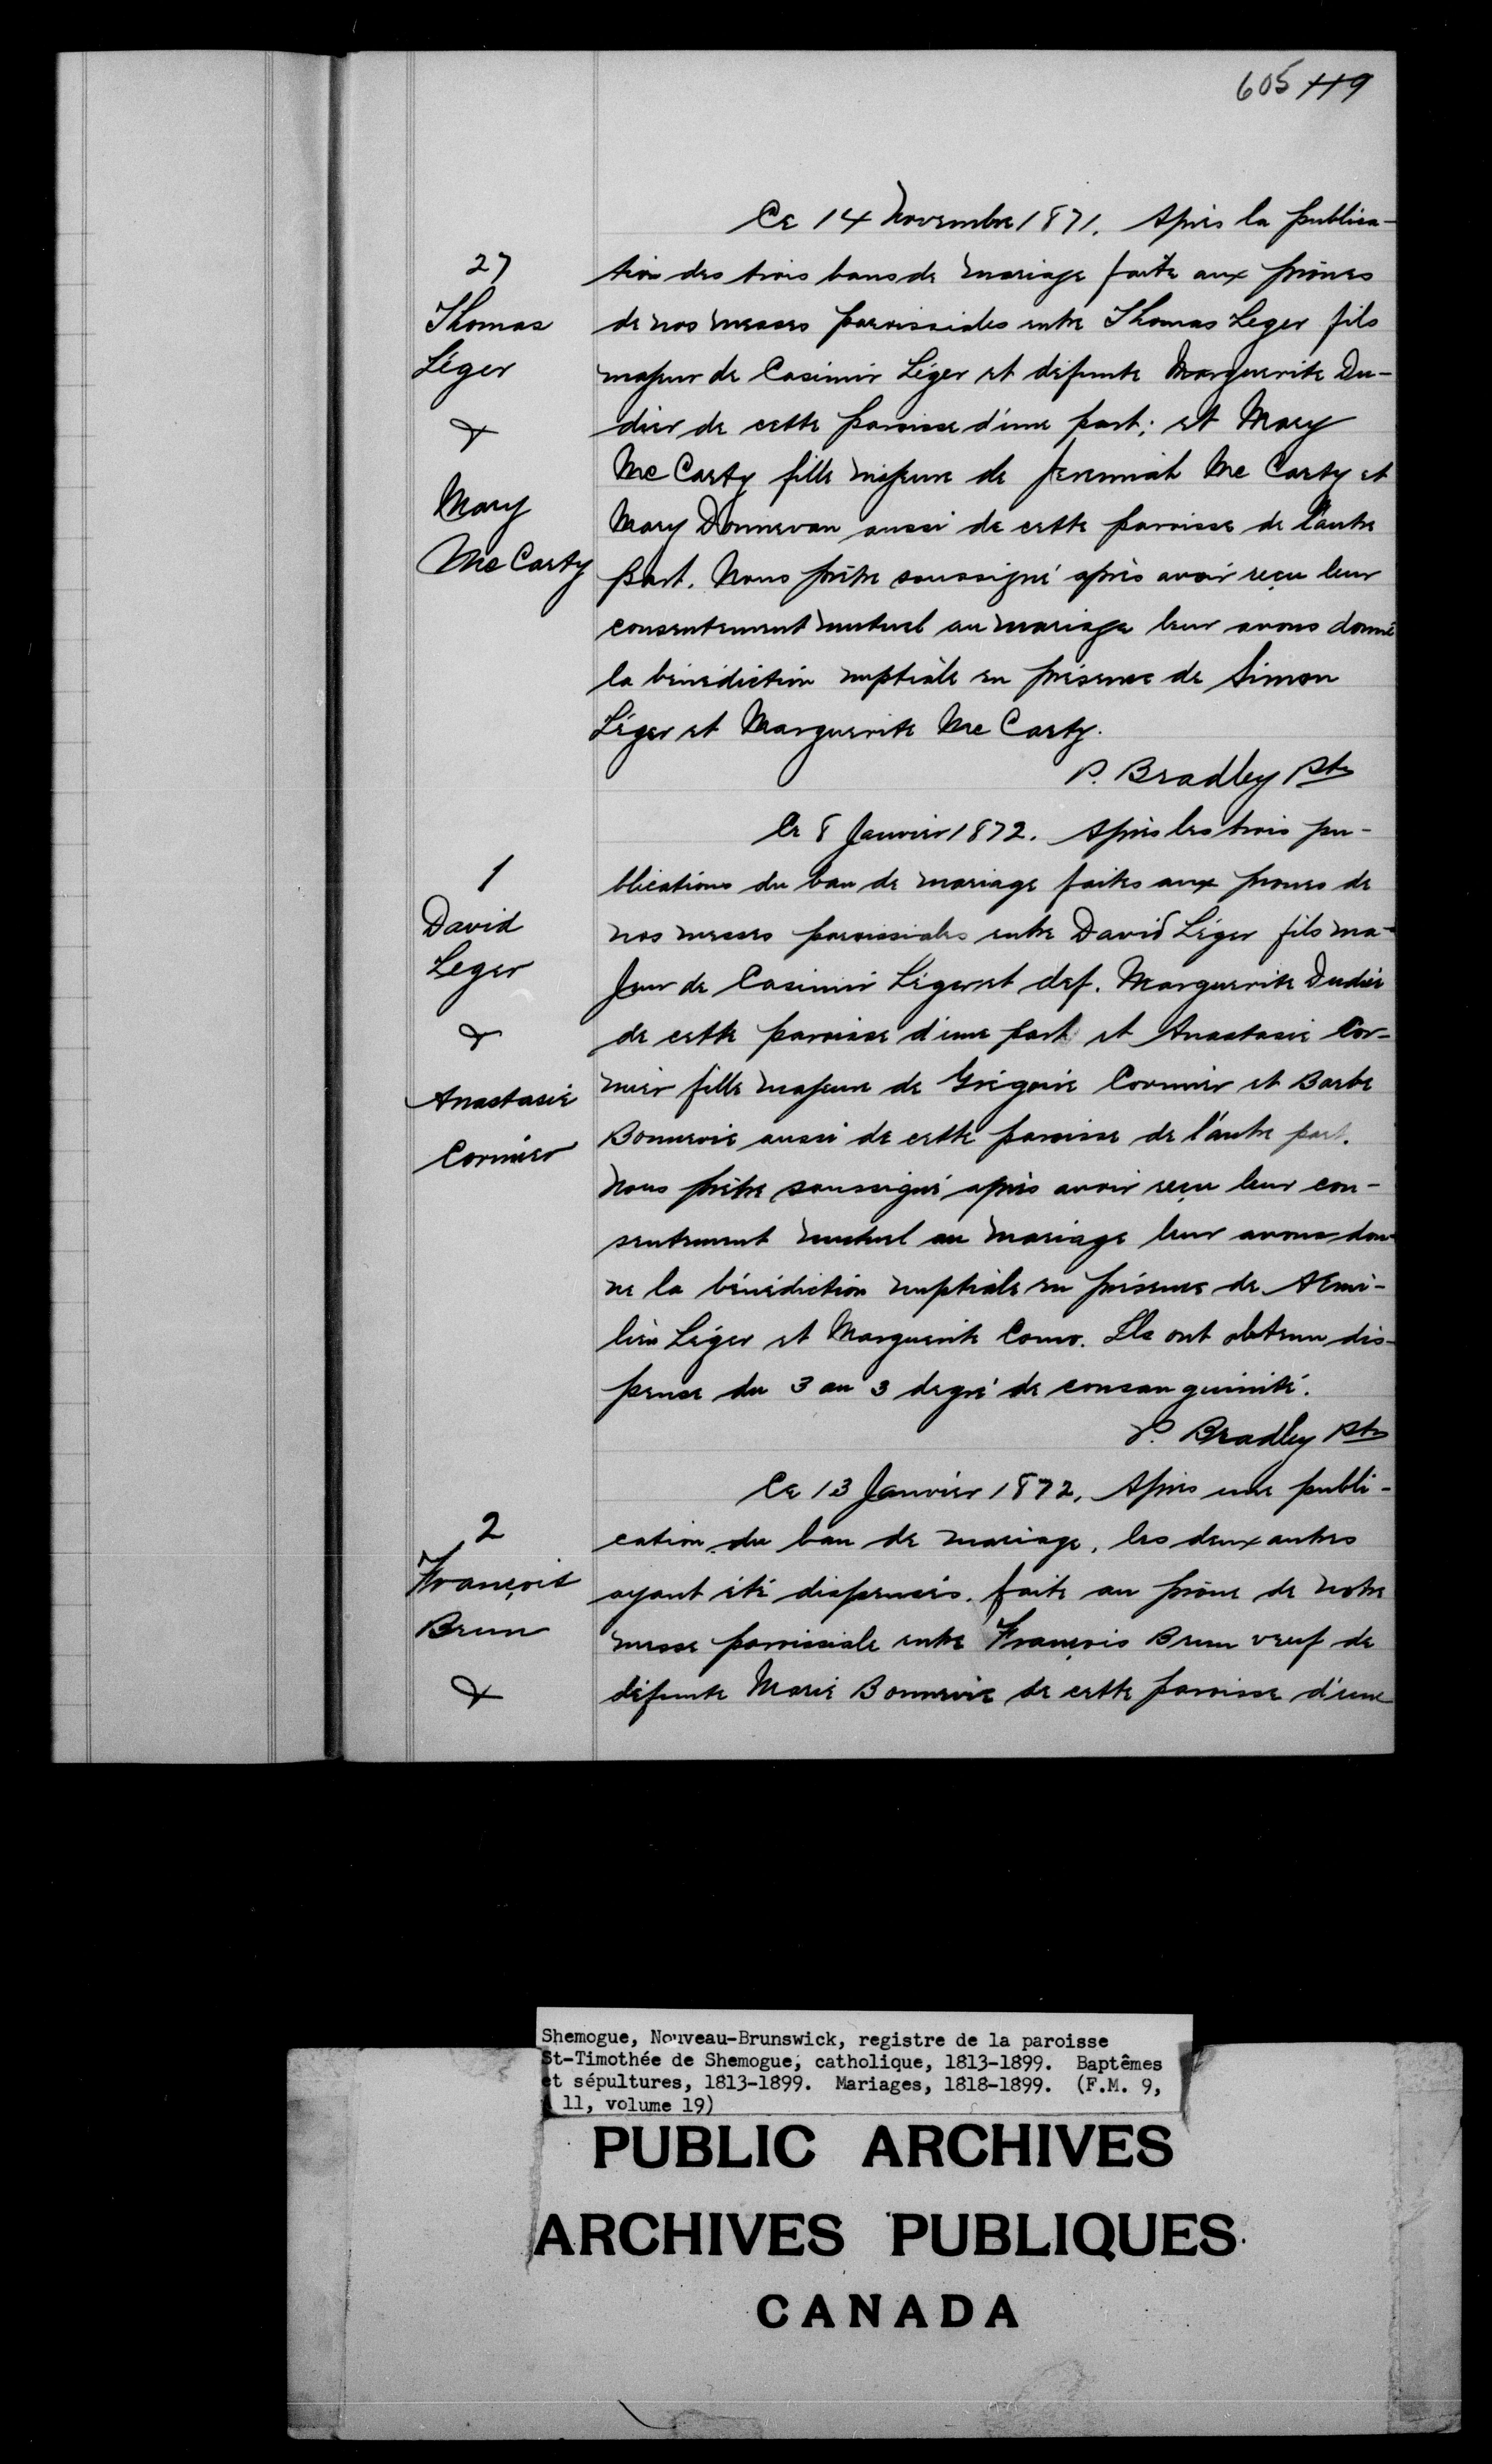 605 119
Ce 14 Novembre 1871. Après la publica-
27
tion des trois bans de mariage faite aux prônes
Thomas
de nos messes paroissiales entre Thomas Leger fils
Léger
majeur de Casimir Léger et défunte Marguerite Du-
&
dier de cette paroisse d'une part; et Mary
Mc Carty fille majeure de Jeremiah Mc Carty et
Mary
Mary Donnevan aussi de cette paroisse de l'autre
Mc Carty
part. Nous prêtre soussigné après avoir reçu leur
consentement mutuel au mariage leur avons donné
la bénédiction nuptiale en présence de Simon
Léger et Marguerite Mc Carty.
P. Bradley Ptr
Ce 8 Janvier 1872. Après les trois pu-
1
blications du ban de mariage faites aux prones de
David
nos messes paroissiales entre David Léger fils ma-
Leger
jeur de Casimir Léger et def. Marguerite Dudier
&
de cette paroisse d'une part et Anastasie Cor-
Anastasie
mier fille majeure de Grégoire Cormier et Barbe
Cormier
Bonnevie aussi de cette paroisse de l'autre part.
Nous prêtre soussigné après avoir reçu leur con-
sentement mutuel au mariage leur avons don-
ne la bénédiction nuptiale en présence de
Léger et Marguerite Como. Ils ont obtenu dis-
pense du 3 au 3 degré de consanguinité.
P. Bradley Ptr
Ce 13 Janvier 1872. Après une publi-
2
cation du ban de mariage, les deux autres
François
ayant été dispensés, faite au prône de notre
Brun
messe paroissiale entre François Brun veuf de
&
défunte Marie Bonnevie de cette paroisse d'une
Shemogue, Nouveau-Brunswick, registre de la paroisse
St-Timothée de Shemogue, catholique, 1813-1899. Baptêmes
et sépultures, 1813-1899. Mariages, 1818-1899. (F.M. 9,
11, volume 19)
PUBLIC ARCHIVES
ARCHIVES PUBLIQUES
CANADA